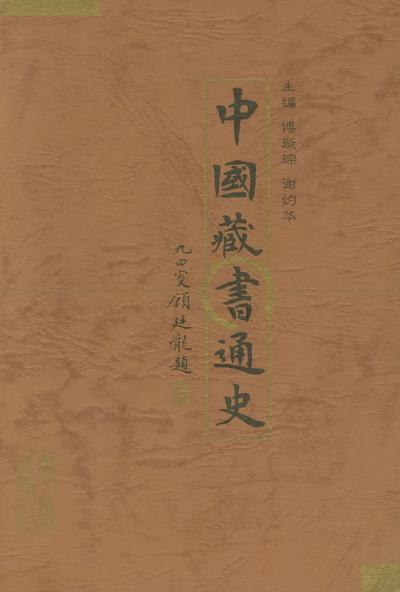 主编 傅璇琮 谢灼华
中國藏書通史
九四叟顾廷龍題